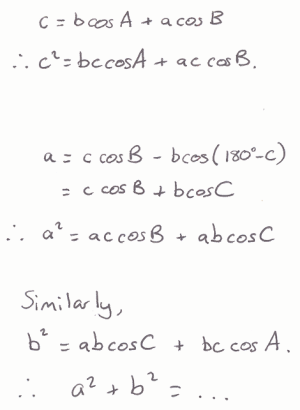 c = b cos A + a cos B
∴ c² = bc cos A + ac cos B.
a = c cos B - b cos(180°-C)
= c cos B + b cos C
∴ a² = ac cos B + ab cos C
Similarly,
b² = ab cos C + bc cos A.
∴ a² + b² = ...